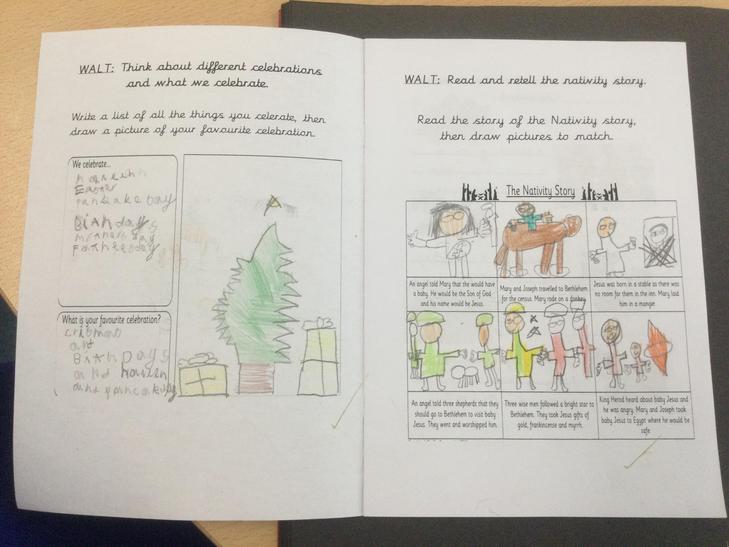 WALT: Think about different celebrations
and what we celebrate.
Write a list of all the things you celerate, then
draw a picture of your favourite celebration.
We celebrate...
Easter
pancake bay
BiAh days
mothers day
Fatheesday
What is your favourite celebration?
BiAh Days
WALT: Read and retell the nativity story.
Read the story of the Nativity story,
then draw pictures to match.
The Nativity Story
An angel told Mary that she would have
a baby. He would be the Son of God
and his name would be Jesus.
Mary and Joseph travelled to Bethlehem
for the census. Mary rode on a donkey.
Jesus was born in a stable as there was
no room for them in the inn. Mary laid
him in a manger.
An angel told three shepherds that they
should go to Bethlehem to visit baby
Jesus. They went and worshipped him.
Three wise men followed a bright star to
Bethlehem. They took Jesus gifts of
gold, frankincense and myrrh.
King Herod heard about baby Jesus and
he was angry. Mary and Joseph took
baby Jesus to Egypt where he would be
safe.